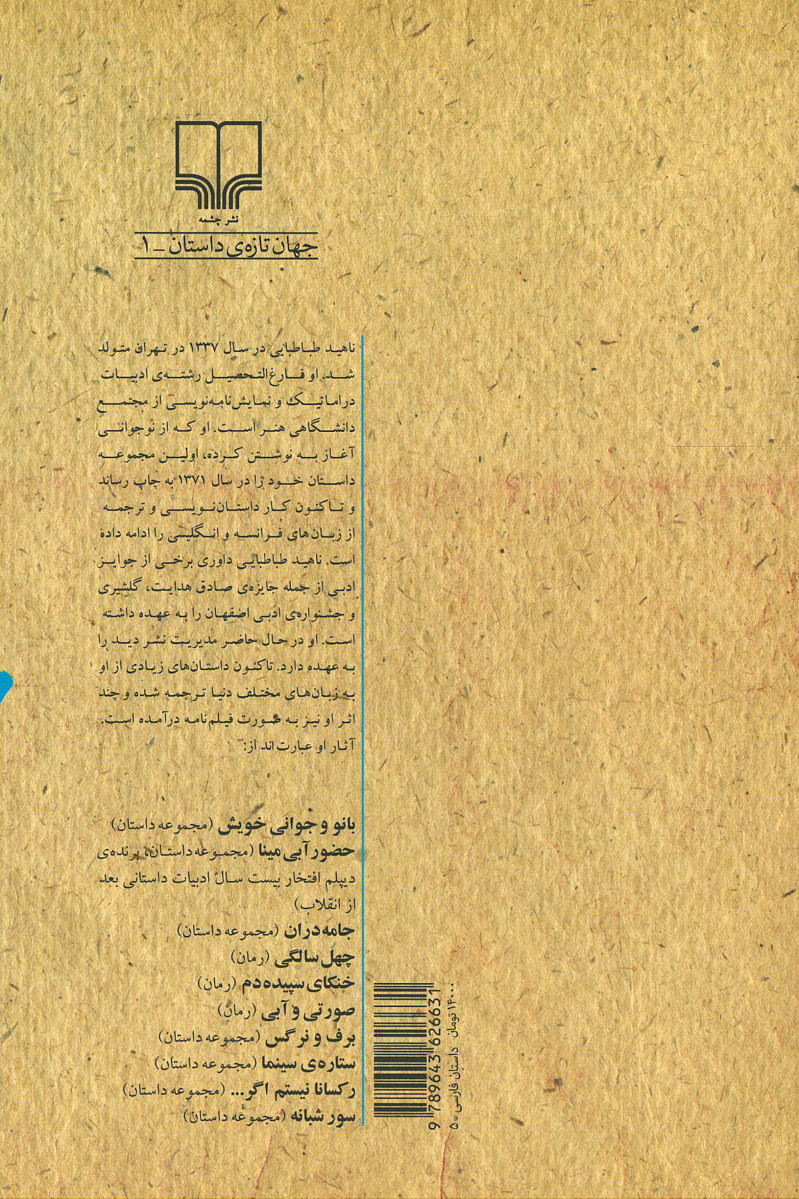 نشر چشمه
جهان تازه‌ی داستان ـ ۱
ناهید طباطبایی در سال ۱۳۳۷ در تهران متولد
شد. او فارغ‌التحصیل رشته‌ی ادبیات
دراماتیک و نمایش‌نامه‌نویسی از مجتمع
دانشگاهی هنر است. او که از نوجوانی
آغاز به نوشتن کرده، اولین مجموعه
داستان خود را در سال ۱۳۷۱ به چاپ رساند
و تاکنون کار داستان‌نویسی و ترجمه
از زبان‌های فرانسه و انگلیسی را ادامه داده
است. ناهید طباطبایی داوری برخی از جوایز
ادبی از جمله جایزه‌ی صادق هدایت، گلشیری
و جشنواره‌ی ادبی اصفهان را به عهده داشته
است. او در حال حاضر مدیریت نشر دید را
به عهده دارد. تاکنون داستان‌های زیادی از او
به زبان‌های مختلف دنیا ترجمه شده و چند
اثر او نیز به صورت فیلم‌نامه درآمده است.
آثار او عبارت‌اند از:
بانو و جوانی خویش (مجموعه داستان)
حضور آبی مینا (مجموعه داستان، برنده‌ی
دیپلم افتخار بیست سال ادبیات داستانی بعد
از انقلاب)
جامه‌دران (مجموعه داستان)
چهل سالگی (رمان)
خنکای سپیده‌دم (رمان)
صورتی و آبی (رمان)
برف و نرگس (مجموعه داستان)
ستاره‌ی سینما (مجموعه داستان)
رکسانا نیستم اگر... (مجموعه داستان)
سور شبانه (مجموعه داستان)
9 789643 626631
داستان فارسی - ۵ ۱۴۰۰۰ تومان